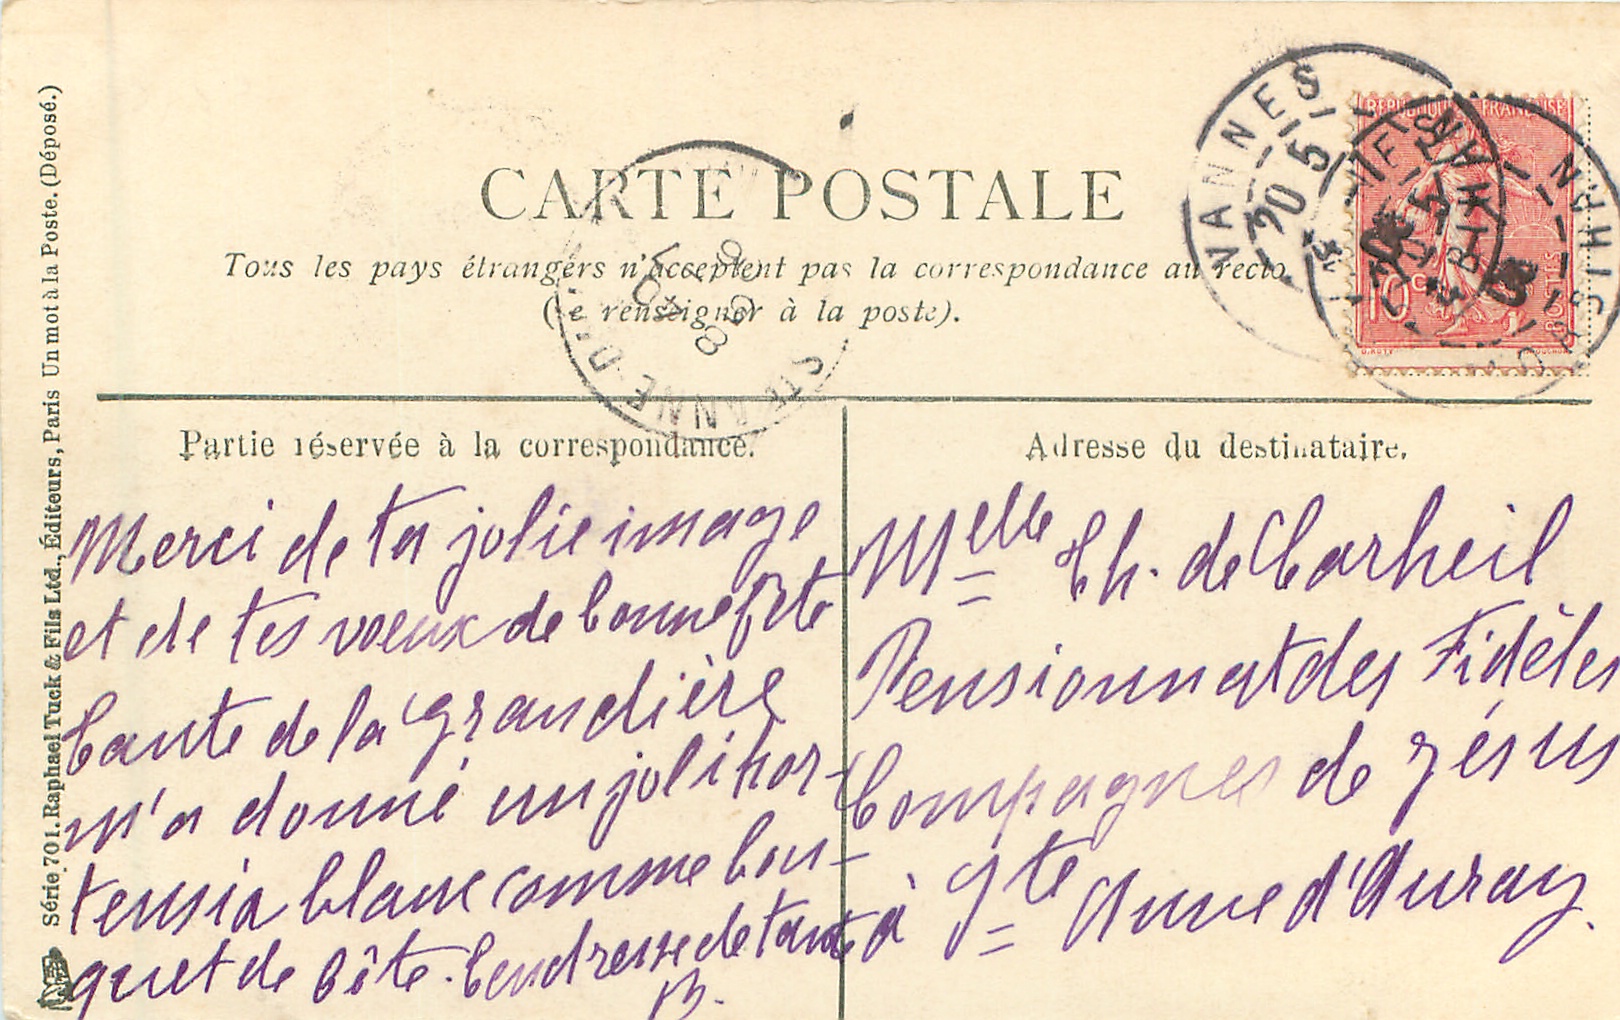 CARTE POSTALE
Tous les pays étrangers n'acceptent pas la correspondance au recto
(se renseigner à la poste).
Partie réservée à la correspondance.
Merci de ta jolie image
et de tes voeux de bonne fête
tante de la Grandière
m'a donné un joli hor-
tensia blanc comme bou-
quet de fête. tendresse de tante
B.
Adresse du destinataire.
Melle Th. de Carheil
Pensionnat des Fidèles
Compagnes de Jésus
à Ste Anne d'Auray.
Série 701. Raphael Tuck & Fils Ltd., Éditeurs, Paris Un mot à la Poste. (Déposé.)
VANNES
20 5
MORBIHAN
STE ANNE D'
REPUBLIQUE FRANÇAISE
10 c
POSTES
O. ROTY